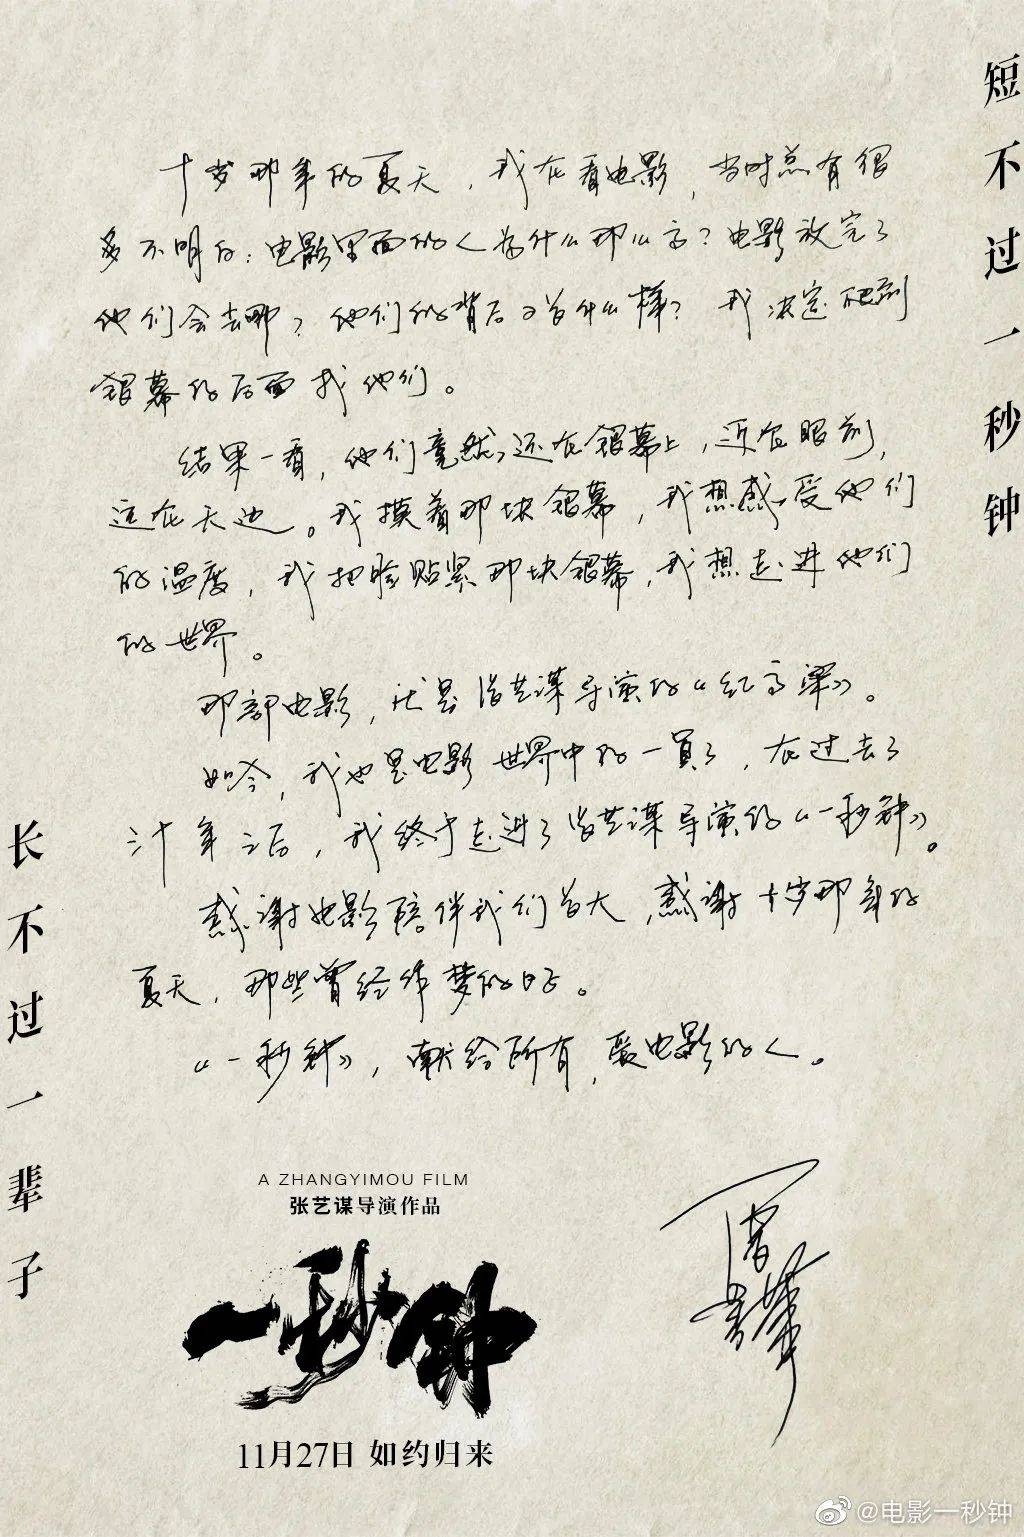 短不过一秒钟
十岁那年的夏天，我在看电影，当时总有很
多不明白：电影里面的人为什么那么高？电影放完了
他们会去哪？他们的背后又是什么样？我决定爬到
银幕的后面找他们。
结果一看，他们竟然还在银幕上，近在眼前，
远在天边。我摸着那块银幕，我想感受他们
的温度，我把脸贴紧那块银幕，我想走进他们
的世界。
那部电影，就是张艺谋导演的《红高粱》。
如今，我也是电影世界中的一員了，在过去了
三十年之后，我终于走进了张艺谋导演的《一秒钟》。
感谢电影陪伴我们长大，感谢十岁那年的
夏天，那些曾经作梦的日子。
《一秒钟》，献给所有爱电影的人。
长不过一辈子
A ZHANGYIMOU FILM
张艺谋导演作品
一秒钟
11月27日 如约归来
@电影一秒钟